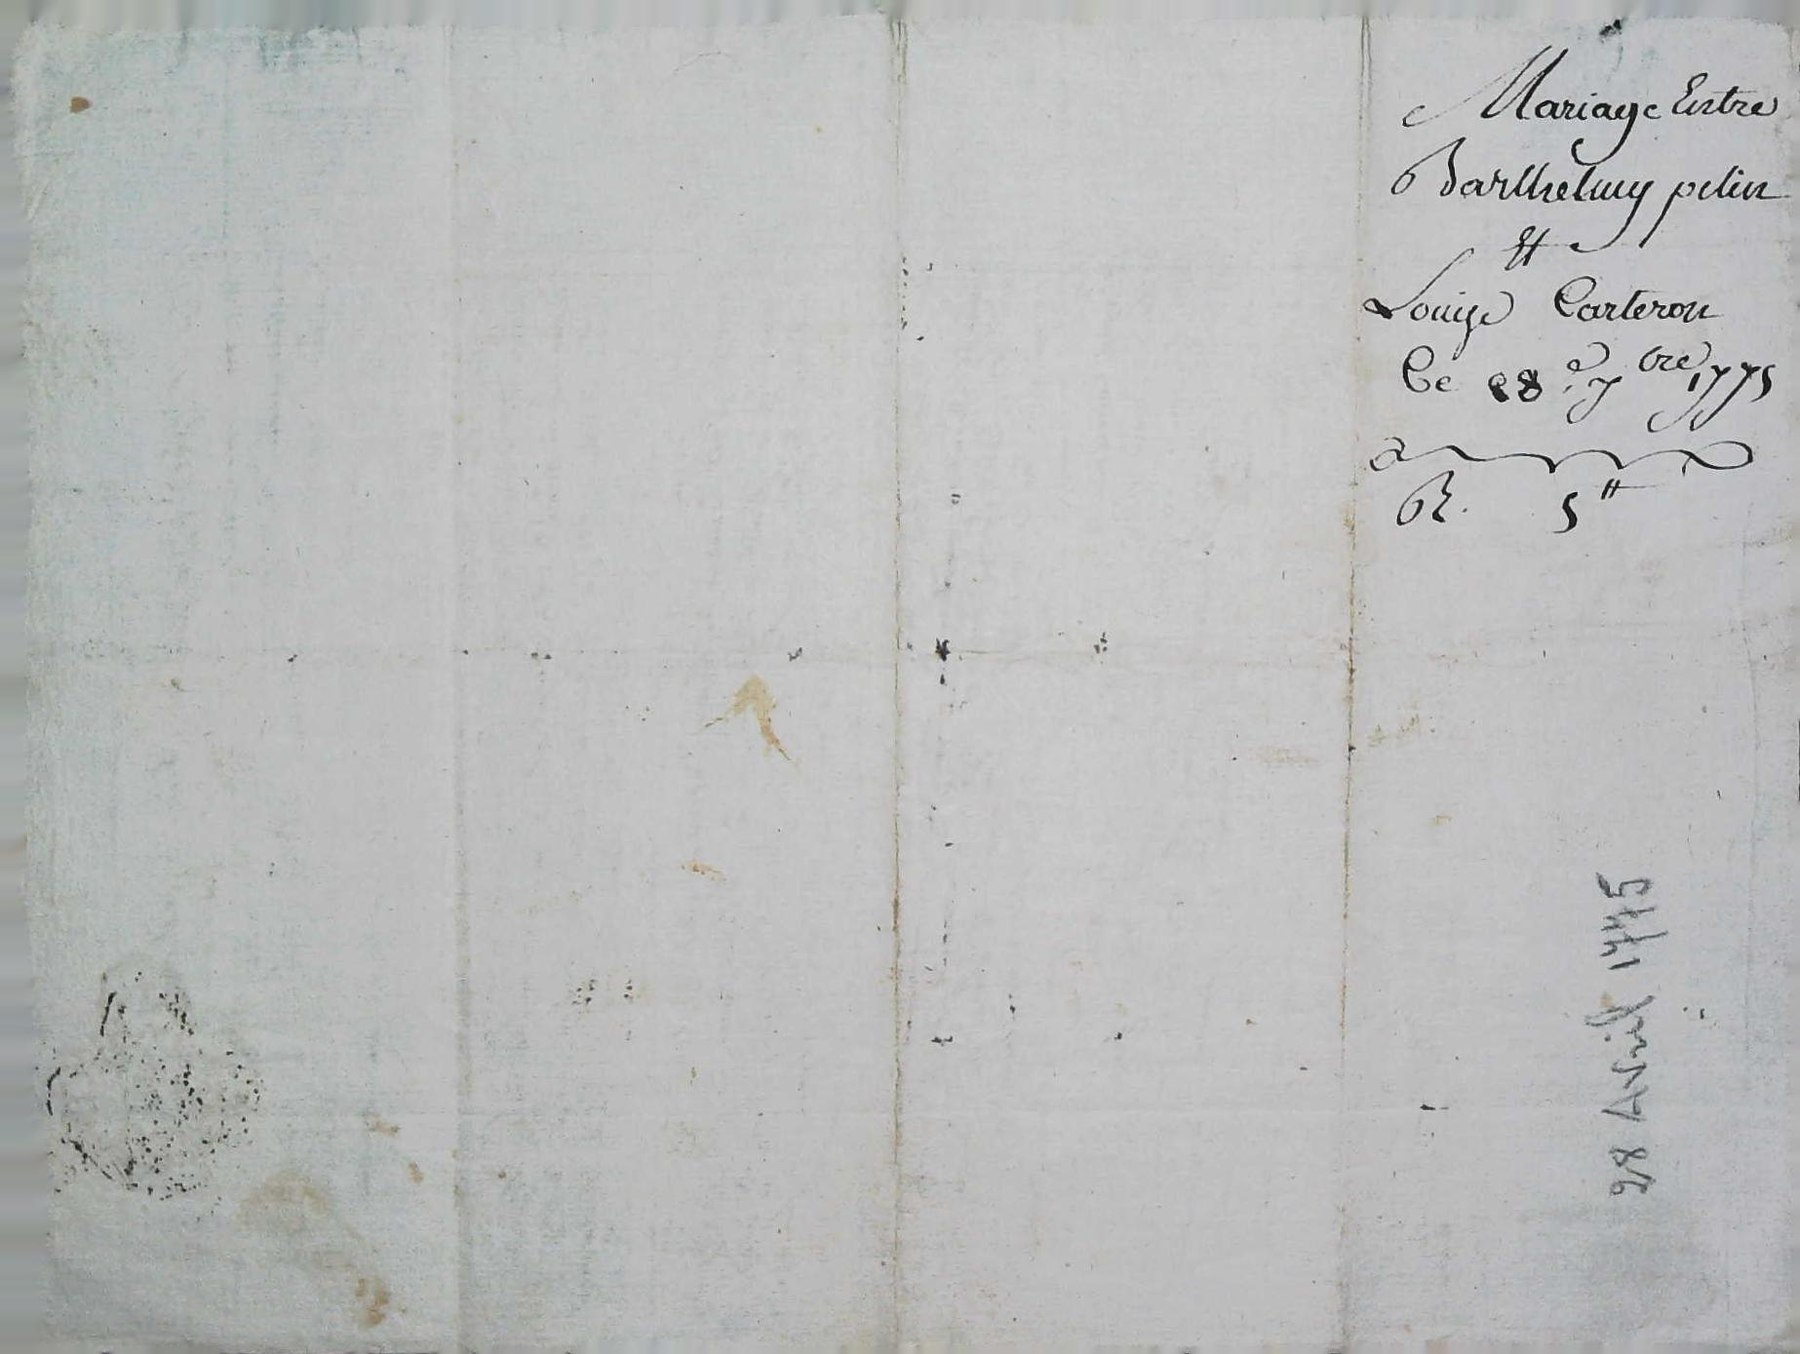 Mariage Entre
Barthelmy pelin
Et
Louize Carteron
Ce 28e 7bre 1775
R. 5tt
28 Avril 1775